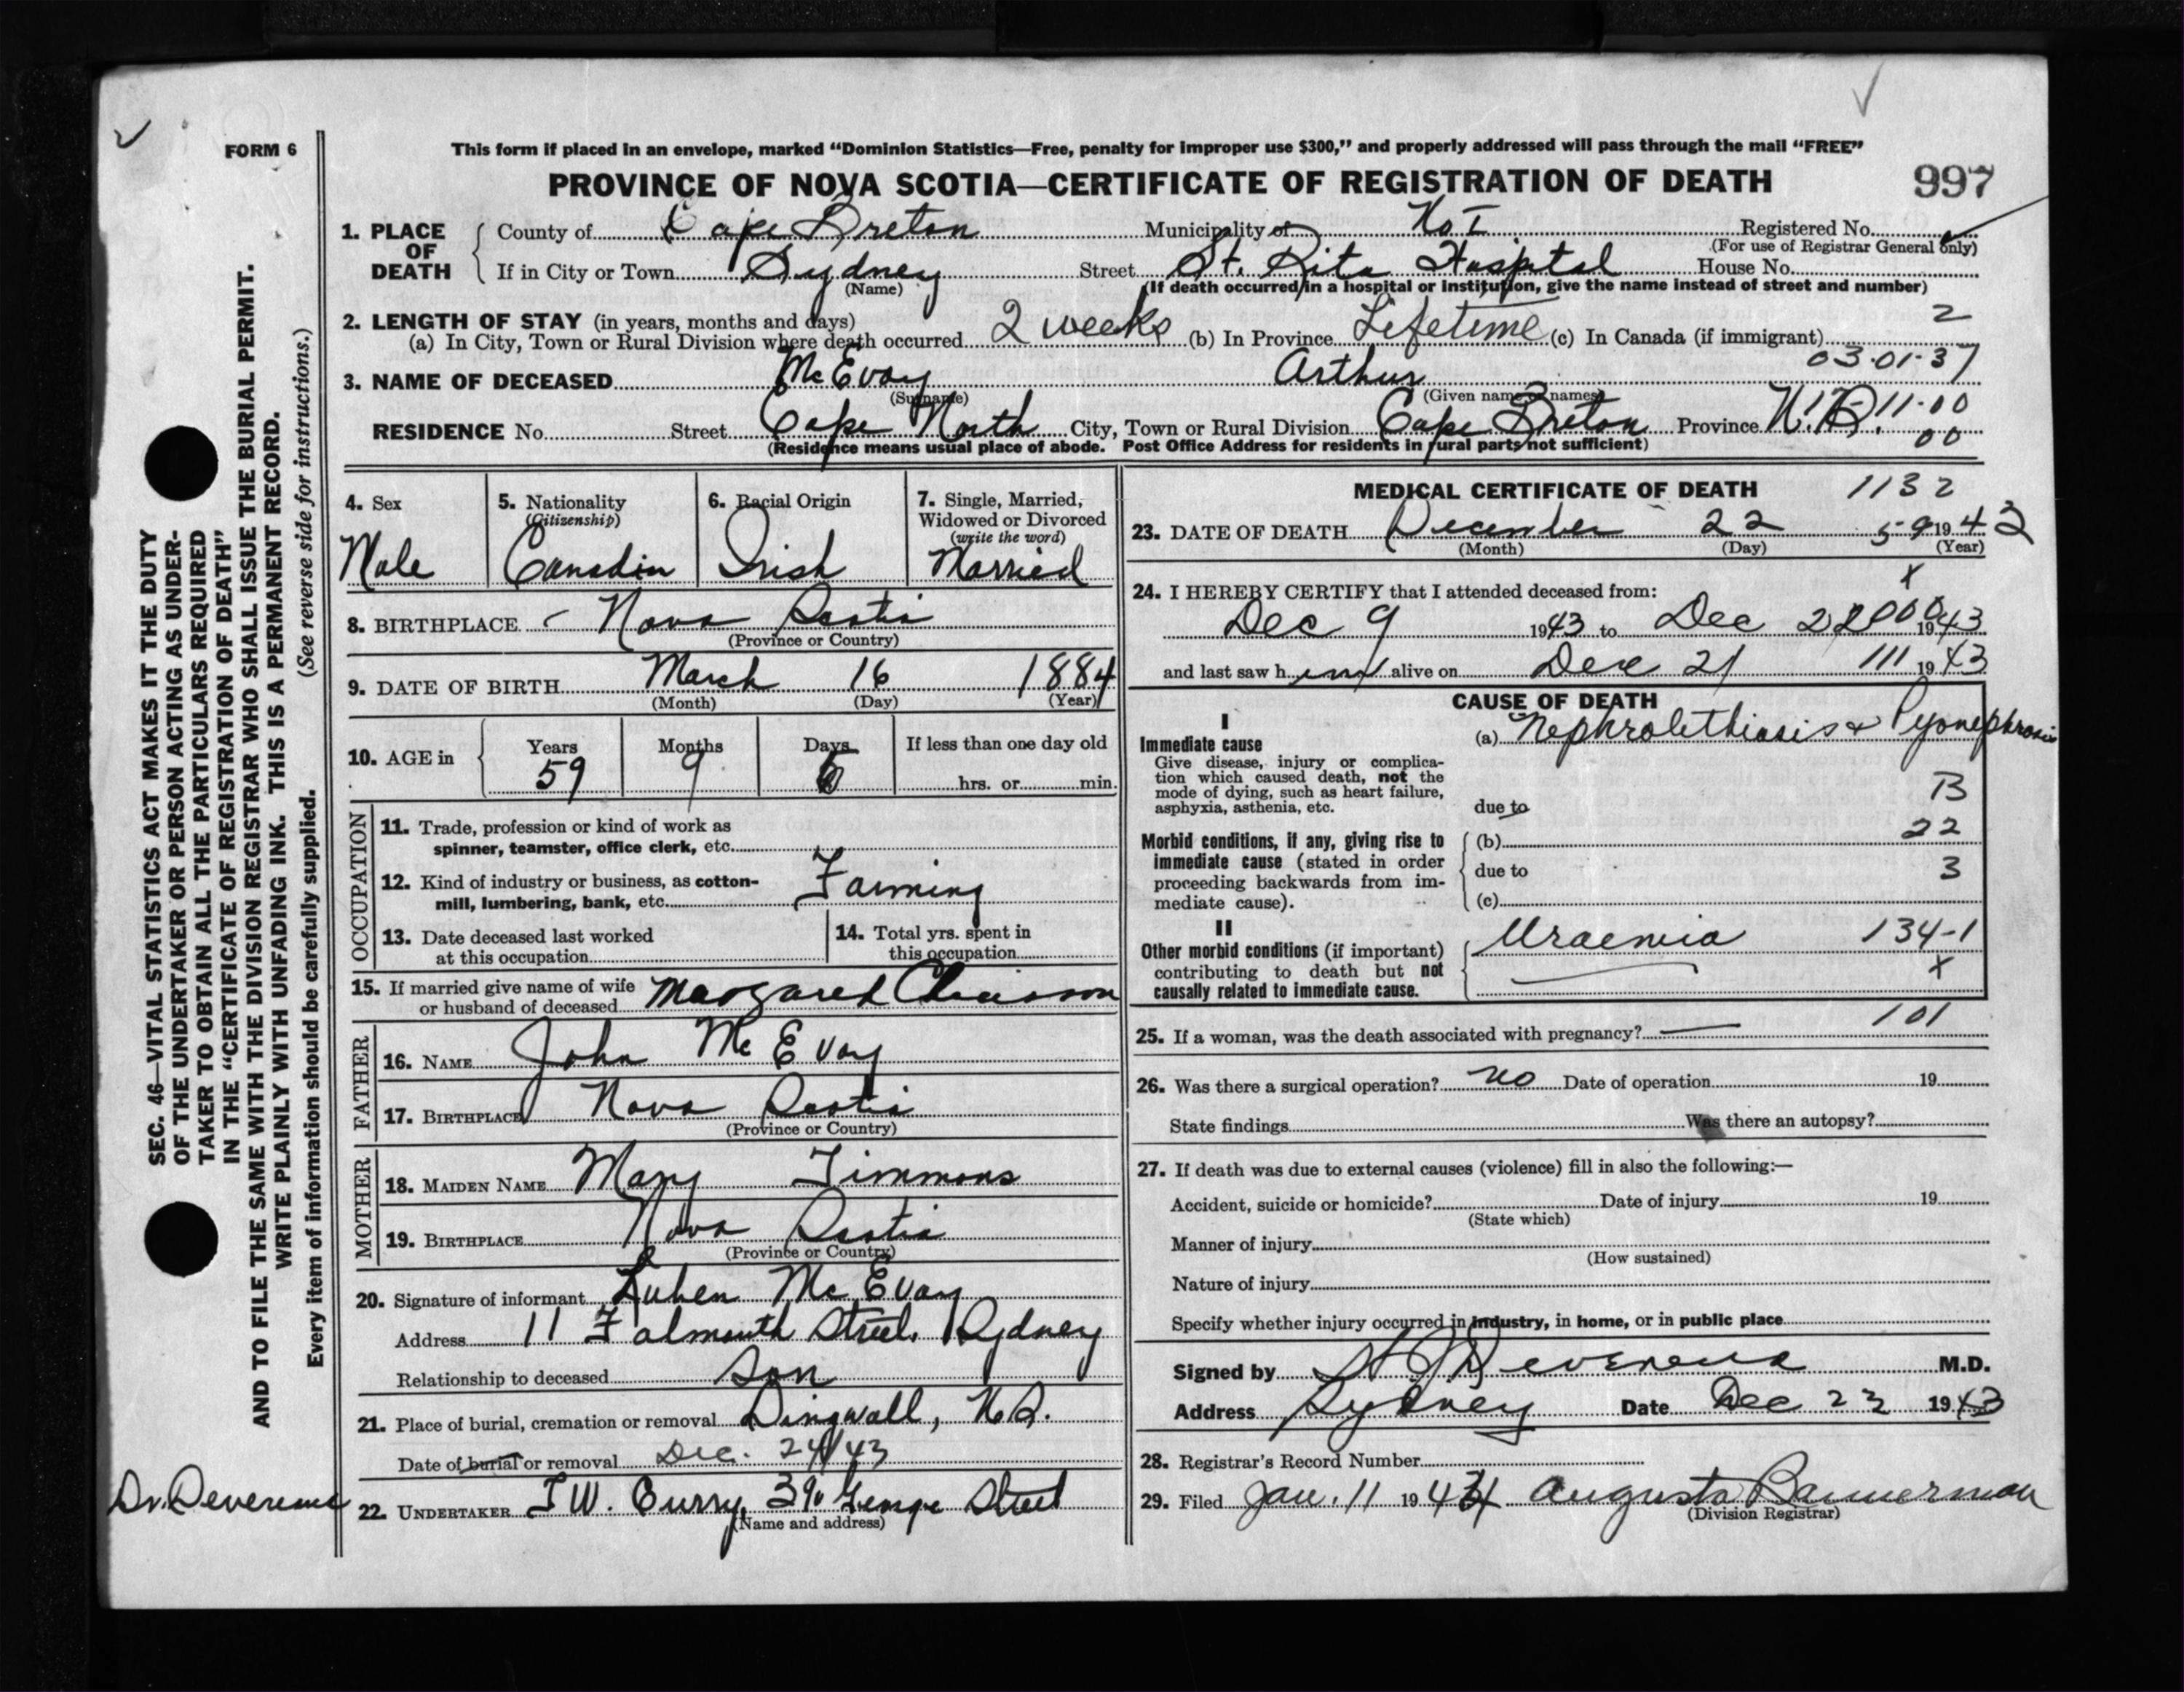 FORM 6
This form if placed in an envelope, marked "Dominion Statistics—Free, penalty for improper use $300," and properly addressed will pass through the mail "FREE"
PROVINCE OF NOVA SCOTIA—CERTIFICATE OF REGISTRATION OF DEATH
997
1. PLACE OF DEATH County of Cape Breton Municipality of No I Registered No.
(For use of Registrar General only)
If in City or Town Sydney Street St. Rita Hospital House No.
(Name) (If death occurred in a hospital or institution, give the name instead of street and number)
2. LENGTH OF STAY (in years, months and days) 2
(a) In City, Town or Rural Division where death occurred 2 weeks (b) In Province Lifetime (c) In Canada (if immigrant)
03-01-37
3. NAME OF DECEASED McEvoy Arthur
(Surname) (Given name or names)
11-00
RESIDENCE No. Street Cape North City, Town or Rural Division Cape Breton Province N.S. 00
(Residence means usual place of abode. Post Office Address for residents in rural parts not sufficient)
4. Sex 5. Nationality (Citizenship) 6. Racial Origin 7. Single, Married, Widowed or Divorced (write the word)
Male Canadin Irish Married
8. BIRTHPLACE Nova Scotia
(Province or Country)
9. DATE OF BIRTH March 16 1884
(Month) (Day) (Year)
10. AGE in Years Months Days If less than one day old
59 9 6 hrs. or min.
OCCUPATION
11. Trade, profession or kind of work as
spinner, teamster, office clerk, etc.
12. Kind of industry or business, as cotton-
mill, lumbering, bank, etc. Farming
13. Date deceased last worked
at this occupation
14. Total yrs. spent in
this occupation
15. If married give name of wife
or husband of deceased Margaret Chiasson
FATHER
16. NAME John McEvoy
17. BIRTHPLACE Nova Scotia
(Province or Country)
MOTHER
18. MAIDEN NAME Mary Timmons
19. BIRTHPLACE Nova Scotia
(Province or Country)
20. Signature of informant Luhen McEvoy
Address 11 Falmouth Street, Sydney
Relationship to deceased Son
21. Place of burial, cremation or removal Dingwall, N.S.
Date of burial or removal Dec. 24/43
22. UNDERTAKER T W. Curry, 390 George Street
(Name and address)
MEDICAL CERTIFICATE OF DEATH 1132
23. DATE OF DEATH December 22 59 1943
(Month) (Day) (Year)
24. I HEREBY CERTIFY that I attended deceased from: x
Dec 9 1943 to Dec 22 000 1943
and last saw him alive on Dec 21 111 1943
CAUSE OF DEATH
I
Immediate cause (a) Nephrolithiasis & Pyonephrosis
Give disease, injury or complica-
tion which caused death, not the
mode of dying, such as heart failure,
asphyxia, asthenia, etc.
due to B
Morbid conditions, if any, giving rise to
immediate cause (stated in order
proceeding backwards from im-
mediate cause).
(b) 22
due to 3
(c)
II
Other morbid conditions (if important)
contributing to death but not
causally related to immediate cause.
Uraemia 134-1
x
101
25. If a woman, was the death associated with pregnancy? —
26. Was there a surgical operation? no Date of operation 19
State findings Was there an autopsy?
27. If death was due to external causes (violence) fill in also the following:—
Accident, suicide or homicide? Date of injury 19
(State which)
Manner of injury
(How sustained)
Nature of injury
Specify whether injury occurred in industry, in home, or in public place
Signed by Devereux M.D.
Address Sydney Date Dec 23 1943
28. Registrar's Record Number
29. Filed Jan. 11 1944 Augusta Bannerman
(Division Registrar)
SEC. 46—VITAL STATISTICS ACT MAKES IT THE DUTY
OF THE UNDERTAKER OR PERSON ACTING AS UNDER-
TAKER TO OBTAIN ALL THE PARTICULARS REQUIRED
IN THE "CERTIFICATE OF REGISTRATION OF DEATH"
AND TO FILE THE SAME WITH THE DIVISION REGISTRAR WHO SHALL ISSUE THE BURIAL PERMIT.
WRITE PLAINLY WITH UNFADING INK. THIS IS A PERMANENT RECORD.
Every item of information should be carefully supplied. (See reverse side for instructions.)
Dr. Devereux